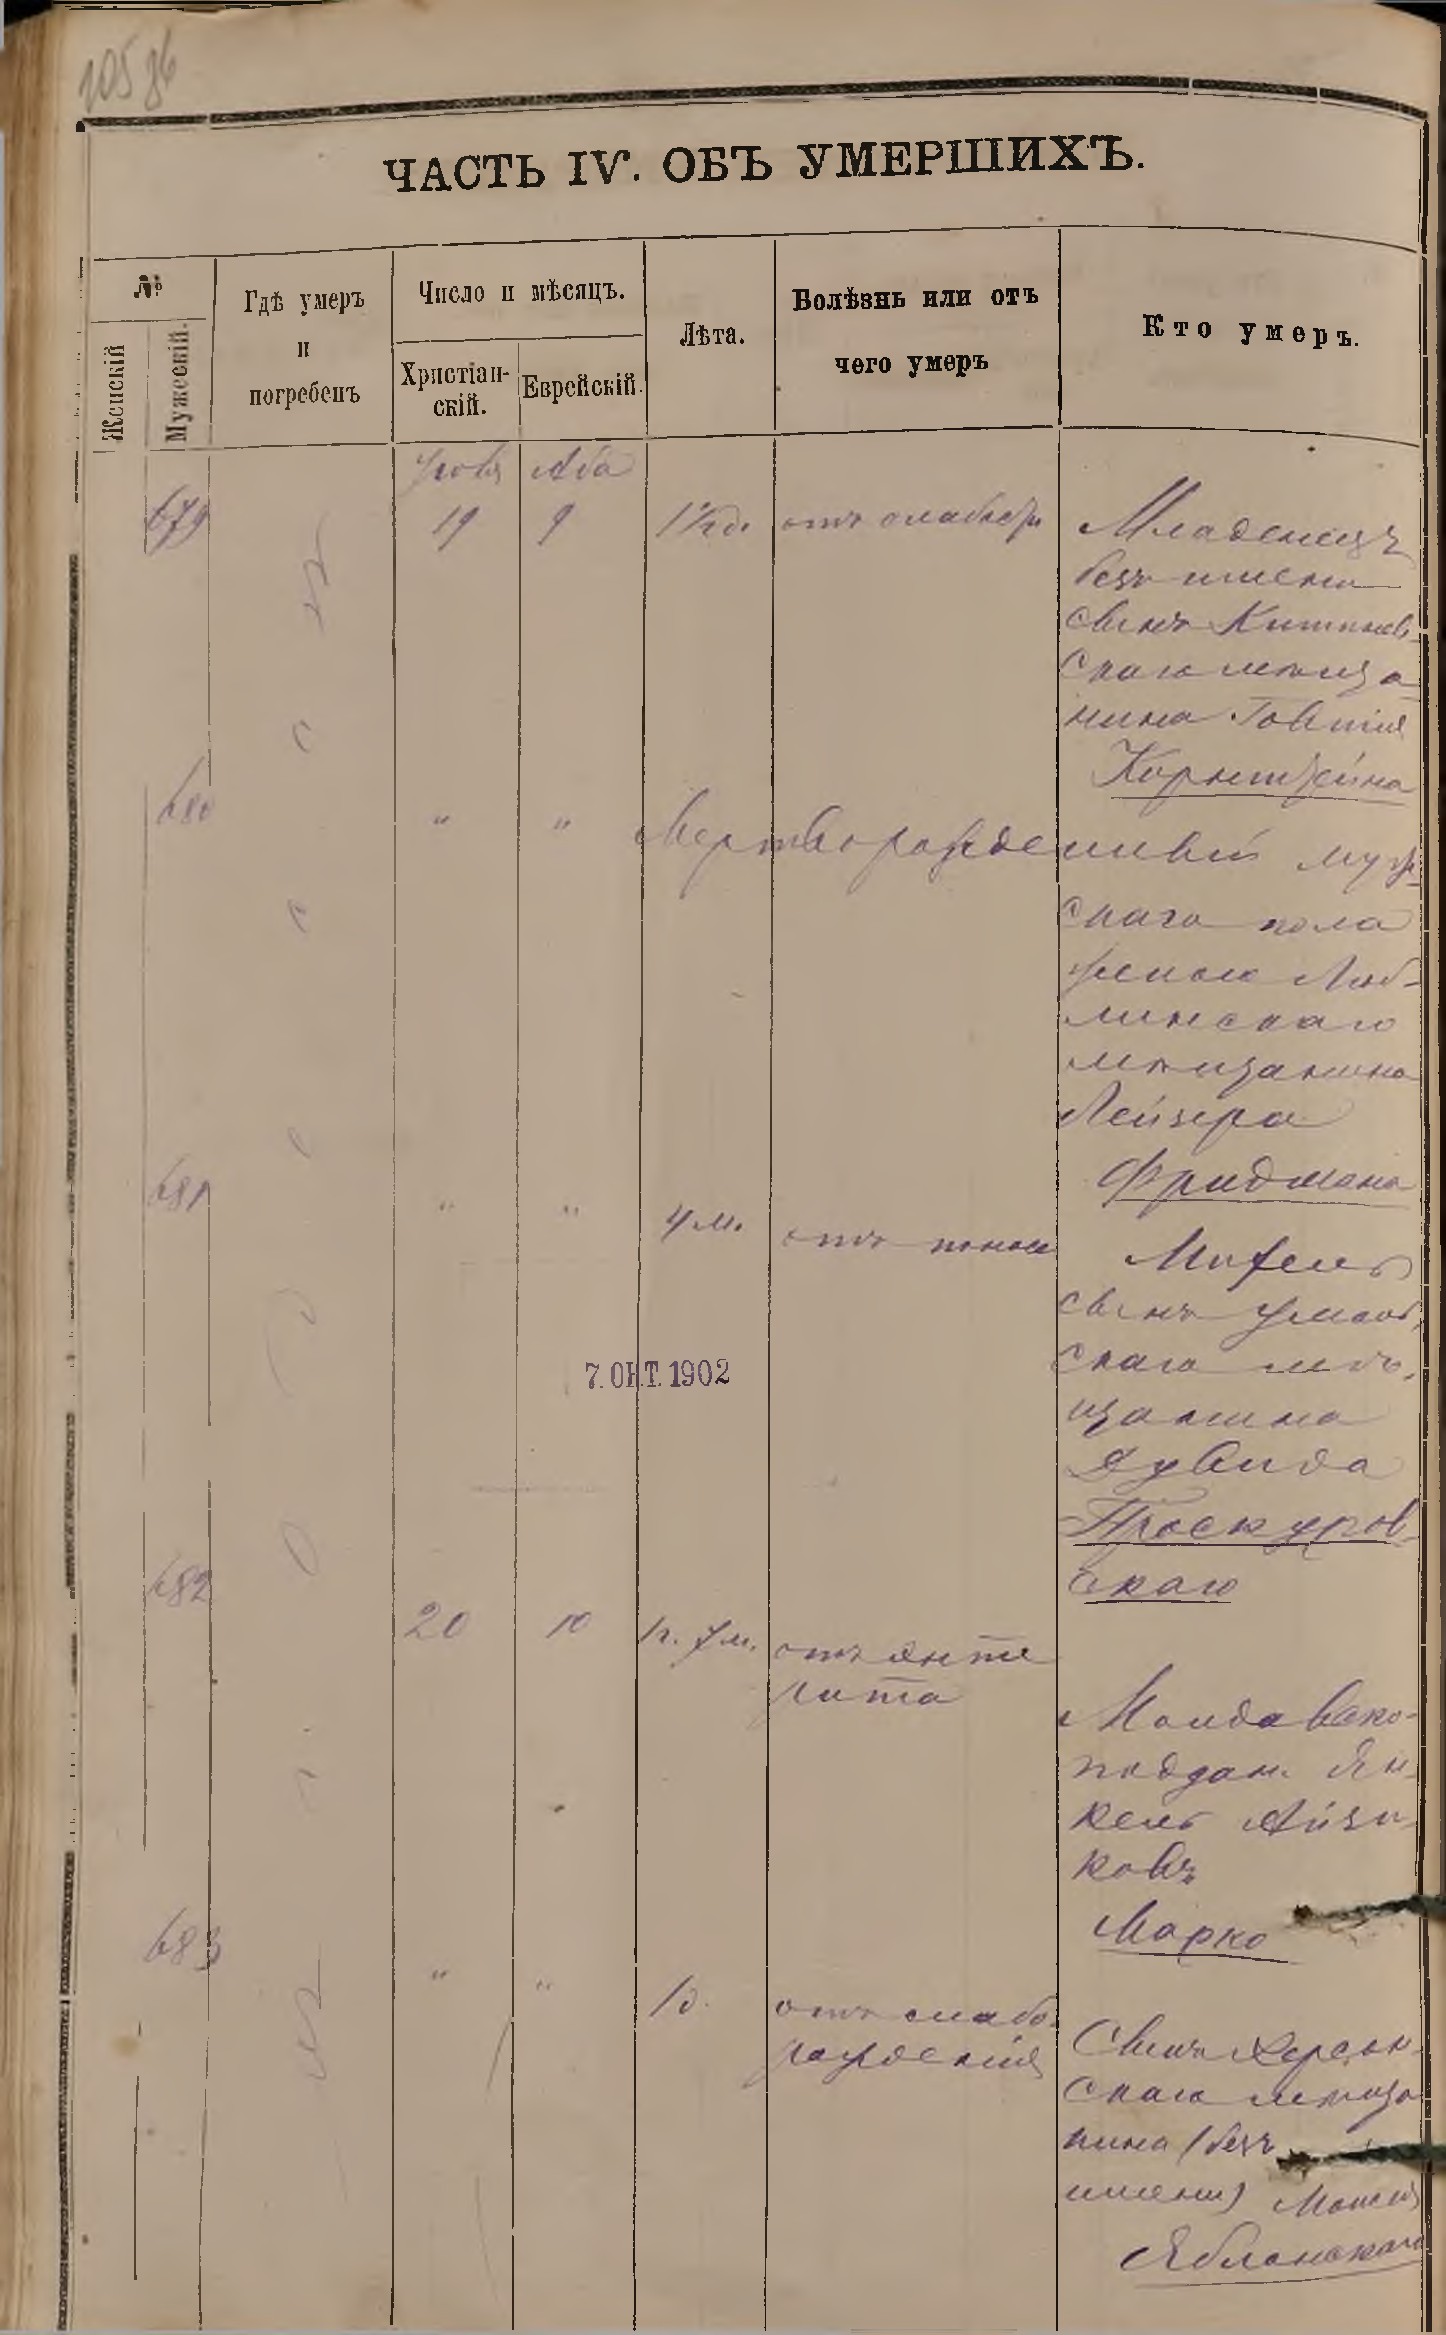 105 86
ЧАСТЬ IV. ОБЪ УМЕРШИХЪ.
№
Женскій
Мужескій.
Гдѣ умеръ
и
погребенъ
Число и мѣсяцъ.
Христіан-
скій.
Еврейскій.
Лѣта.
Болѣзнь или отъ
чего умеръ
Кто умеръ.
Аба
679
19 9 1½ д. отъ слабости
Младенецъ
безъ имени
сынъ Кишинев-
скаго мѣща
нина
Корнштейна
680
" " Мертворожденный муж-
скаго пола
мѣщанина
Лейзера
Фридмана
681
" " 4 м. отъ поноса
сынъ
скаго мѣ-
щанина
Дувида
Проскуров-
скаго
7. ОКТ. 1902
682
20 10 1 г. 7 м. отъ энте
рита
Молдавско-
поддан. Ян-
кель Айзи-
ковъ
Марко
683
" " 1 д. отъ слабо-
рожденія
Сынъ Херсон-
скаго мѣща
нина (безъ
имени)
Яблонскаго